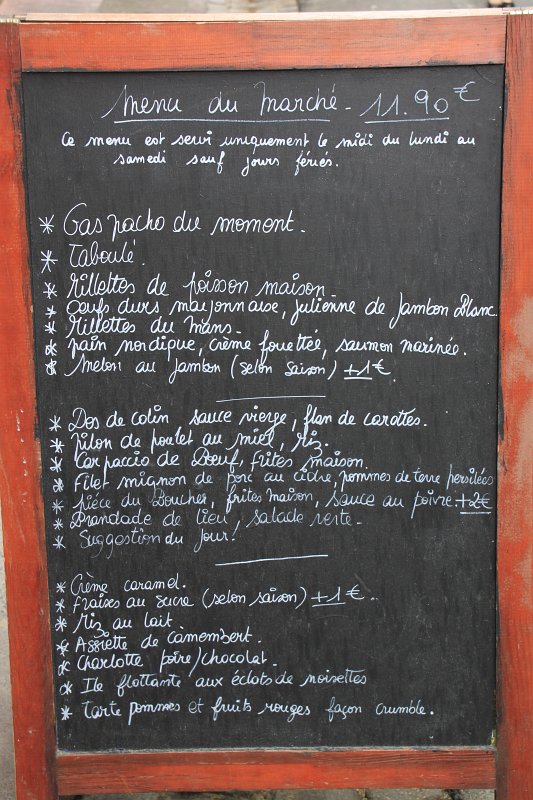 Menu du Marché - 11.90 €
Ce menu est servi uniquement le midi du lundi au
samedi sauf jours fériés.
* Gaspacho du moment.
* Taboulé.
* Rillettes de poisson maison.
* Œufs durs mayonnaise, julienne de Jambon Blanc
* Rillettes du Mans.
* Pain nordique, crème fouettée, saumon marinée.
* Melon au Jambon (selon saison) +1€.
* Dos de colin sauce vierge, flan de carottes.
* Pilon de poulet au miel, Riz.
* Carpaccio de Bœuf, frites maison.
* Filet mignon de porc au cidre, pommes de terre persillées
* pièce du Boucher, frites maison, sauce au poivre. +2€
* Brandade de lieu, salade verte.
* Suggestion du jour!
* Crème caramel.
* Fraises au sucre (selon saison) +1€.
* Riz au lait
* Assiette de camembert.
* Charlotte poire/chocolat.
* Ile flottante aux éclats de noisettes
* Tarte pommes et fruits rouges façon crumble.